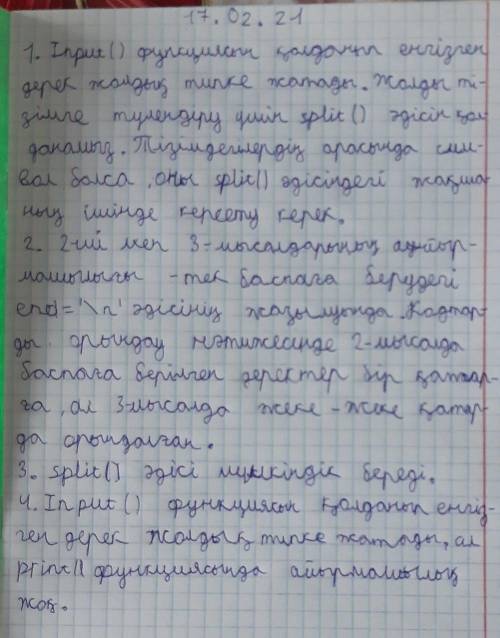 17.02.21
1. Input() функциясын қолданып енгізген
дерек жолдық типке жатады. Жолды ті-
зімге түрлендіру үшін split() әдісін қол
данамыз. Тізімдегілердің арасында сим-
вол болса, оны split() әдісіндегі жақша
ның ішінде көрсету керек.
2. 2-ші мен 3-мысалдарының айыр-
машылығы - тек баспаға берудегі
end='\n' әдісінің жазылуында. Кодтар-
ды орындау нәтижесінде 2-мысалда
баспаға берілген деректер бір қатар-
ға, ал 3-мысалда жеке-жеке қатар-
да орындалған.
3. split() әдісі мүмкіндік береді.
4. Input() функциясын қолданып енгіз-
ген дерек жолдық типке жатады, ал
print() функциясында айырмашылық
жоқ.